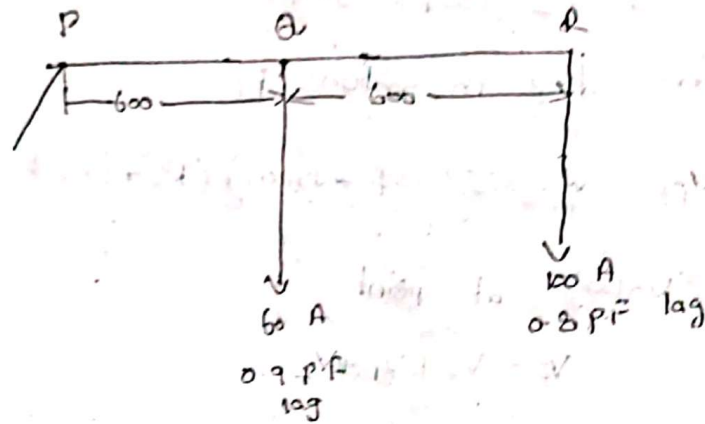 P Q R
600 600
60 A
0.9 P.F
lag
100 A
0.8 P.F lag